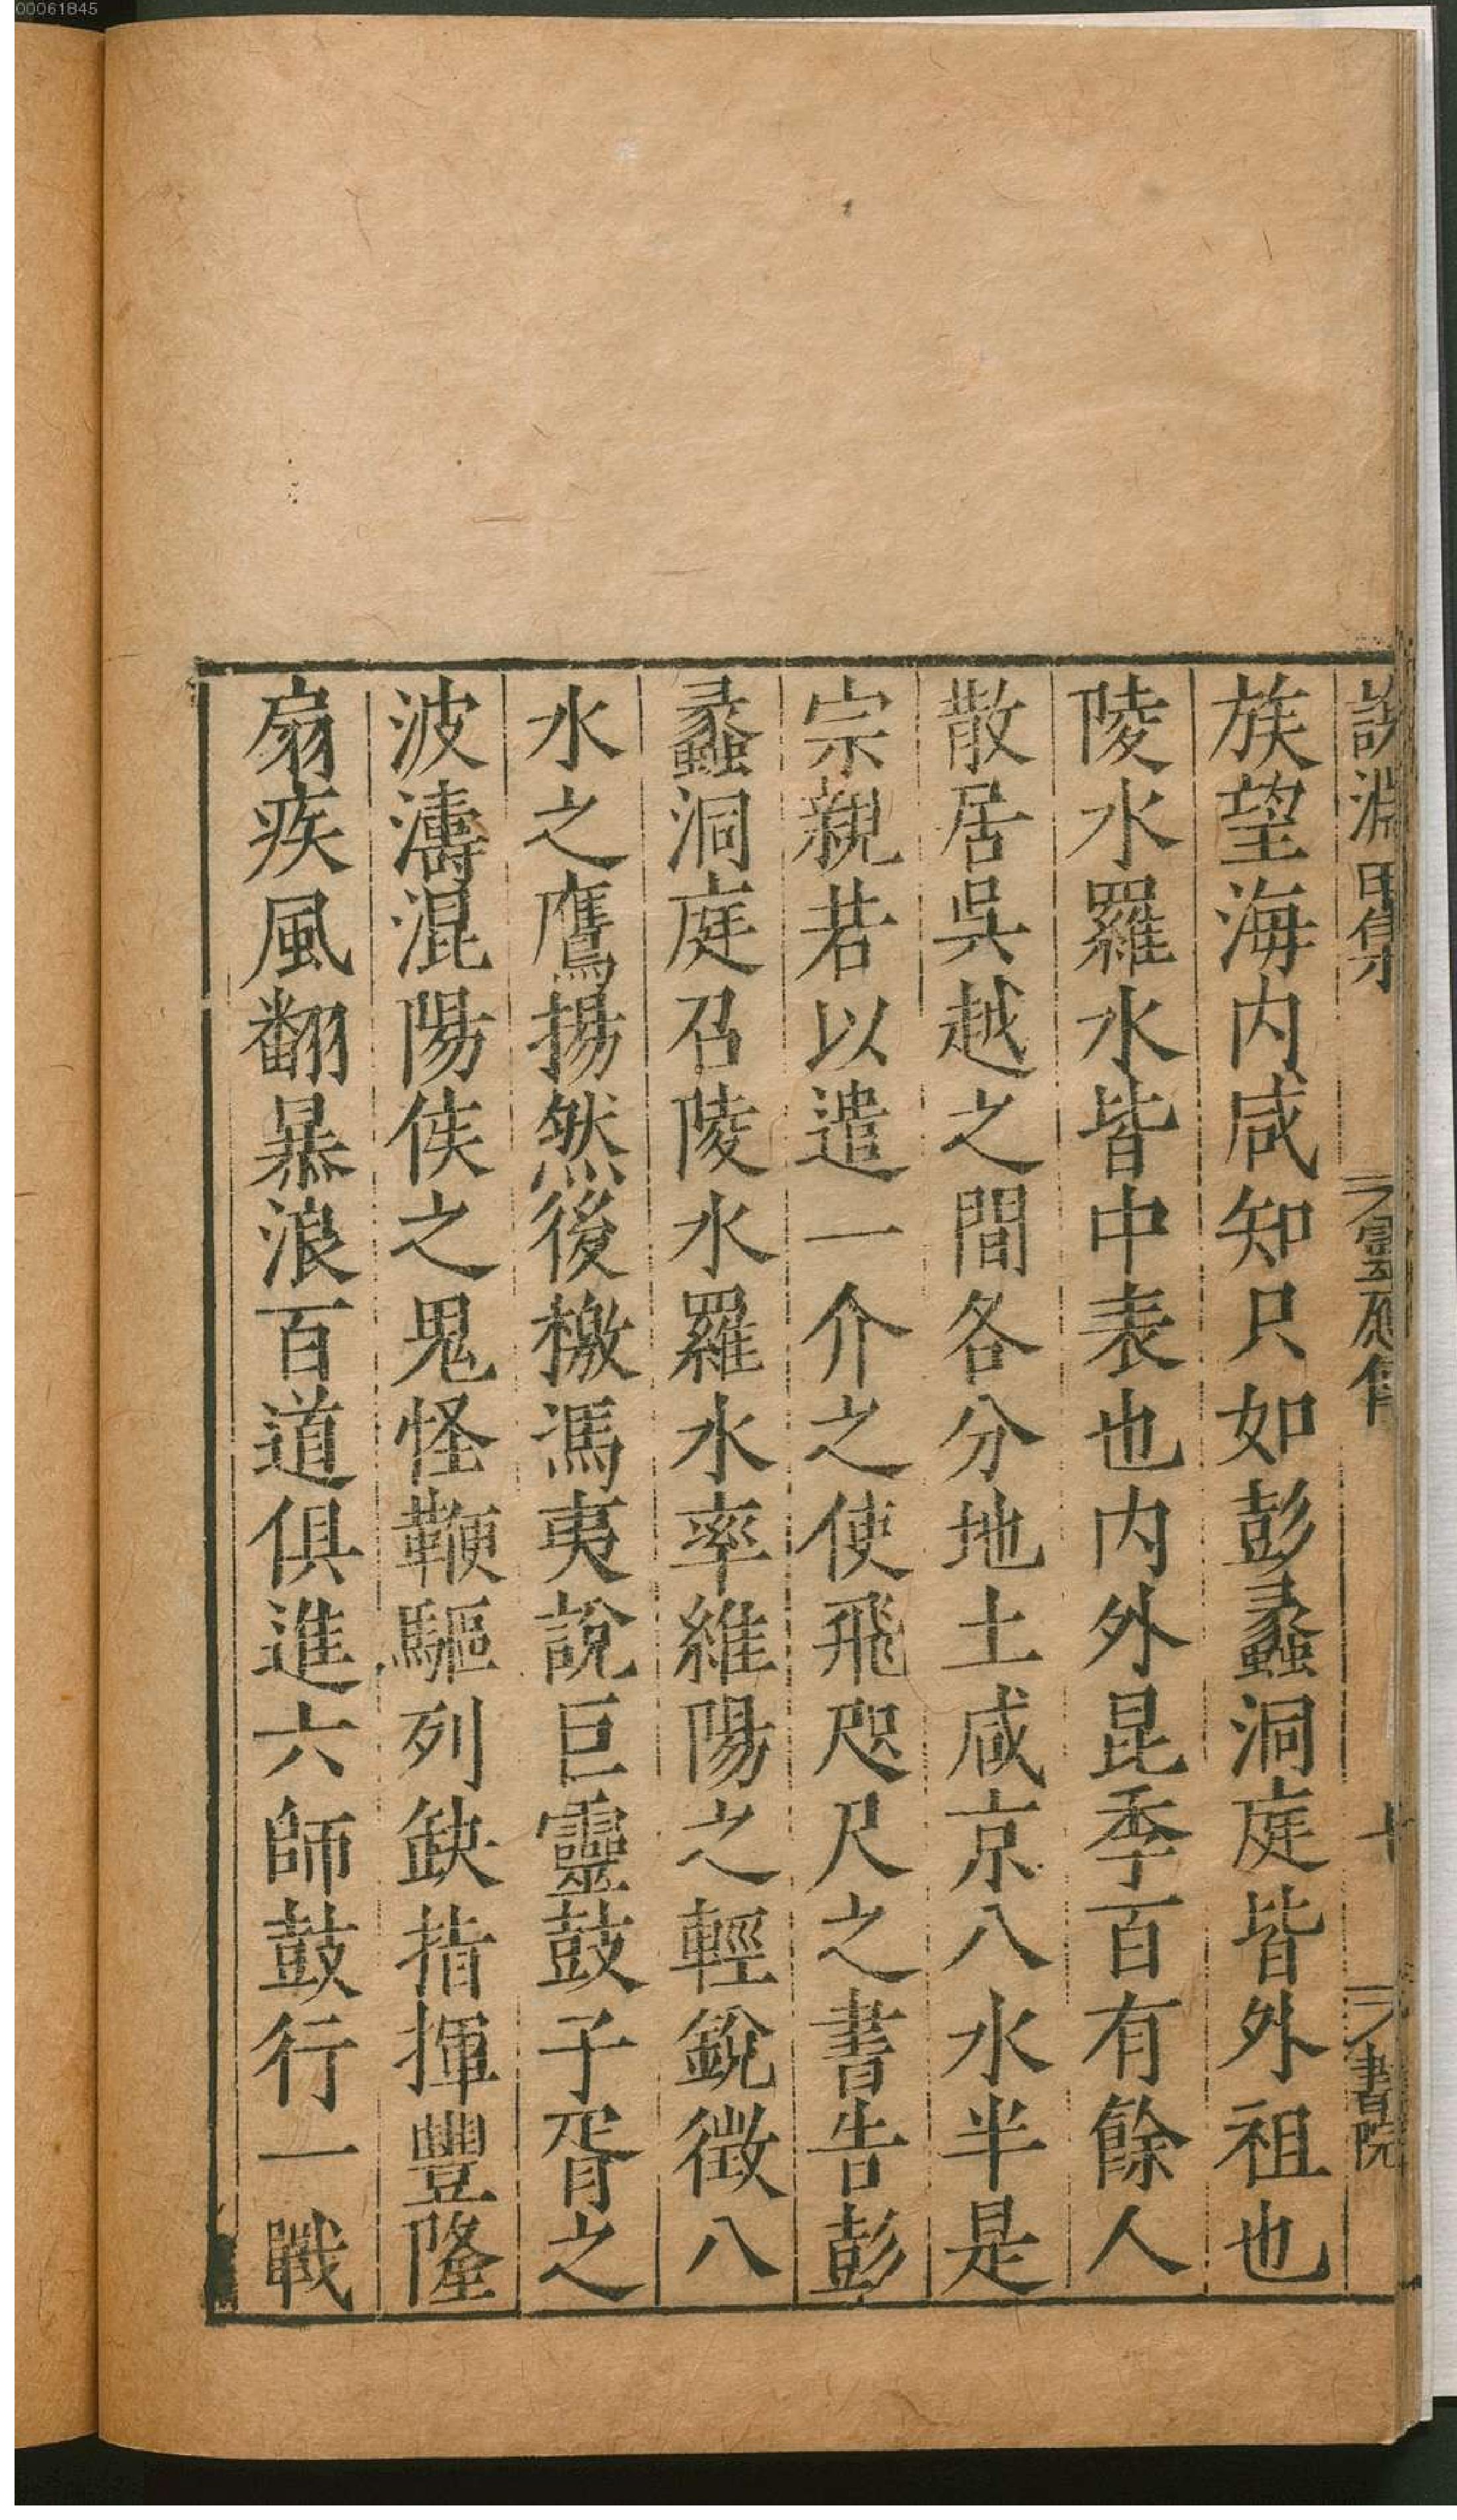 00061845
族望海内咸知只如彭蠡洞庭皆外祖也
陵水羅水皆中表也内外昆季百有餘人
散居吳越之間各分地土咸京八水半是
宗親若以遣一介之使飛咫尺之書告彭
蠡洞庭召陵水羅水率維陽之輕銳徴八
水之鷹揚然後檄馮夷說巨靈鼓子胥之
波濤混陽侯之鬼怪鞭驅列缺指揮豐隆
扇疾風翻暴浪百道俱進六師鼓行一戰